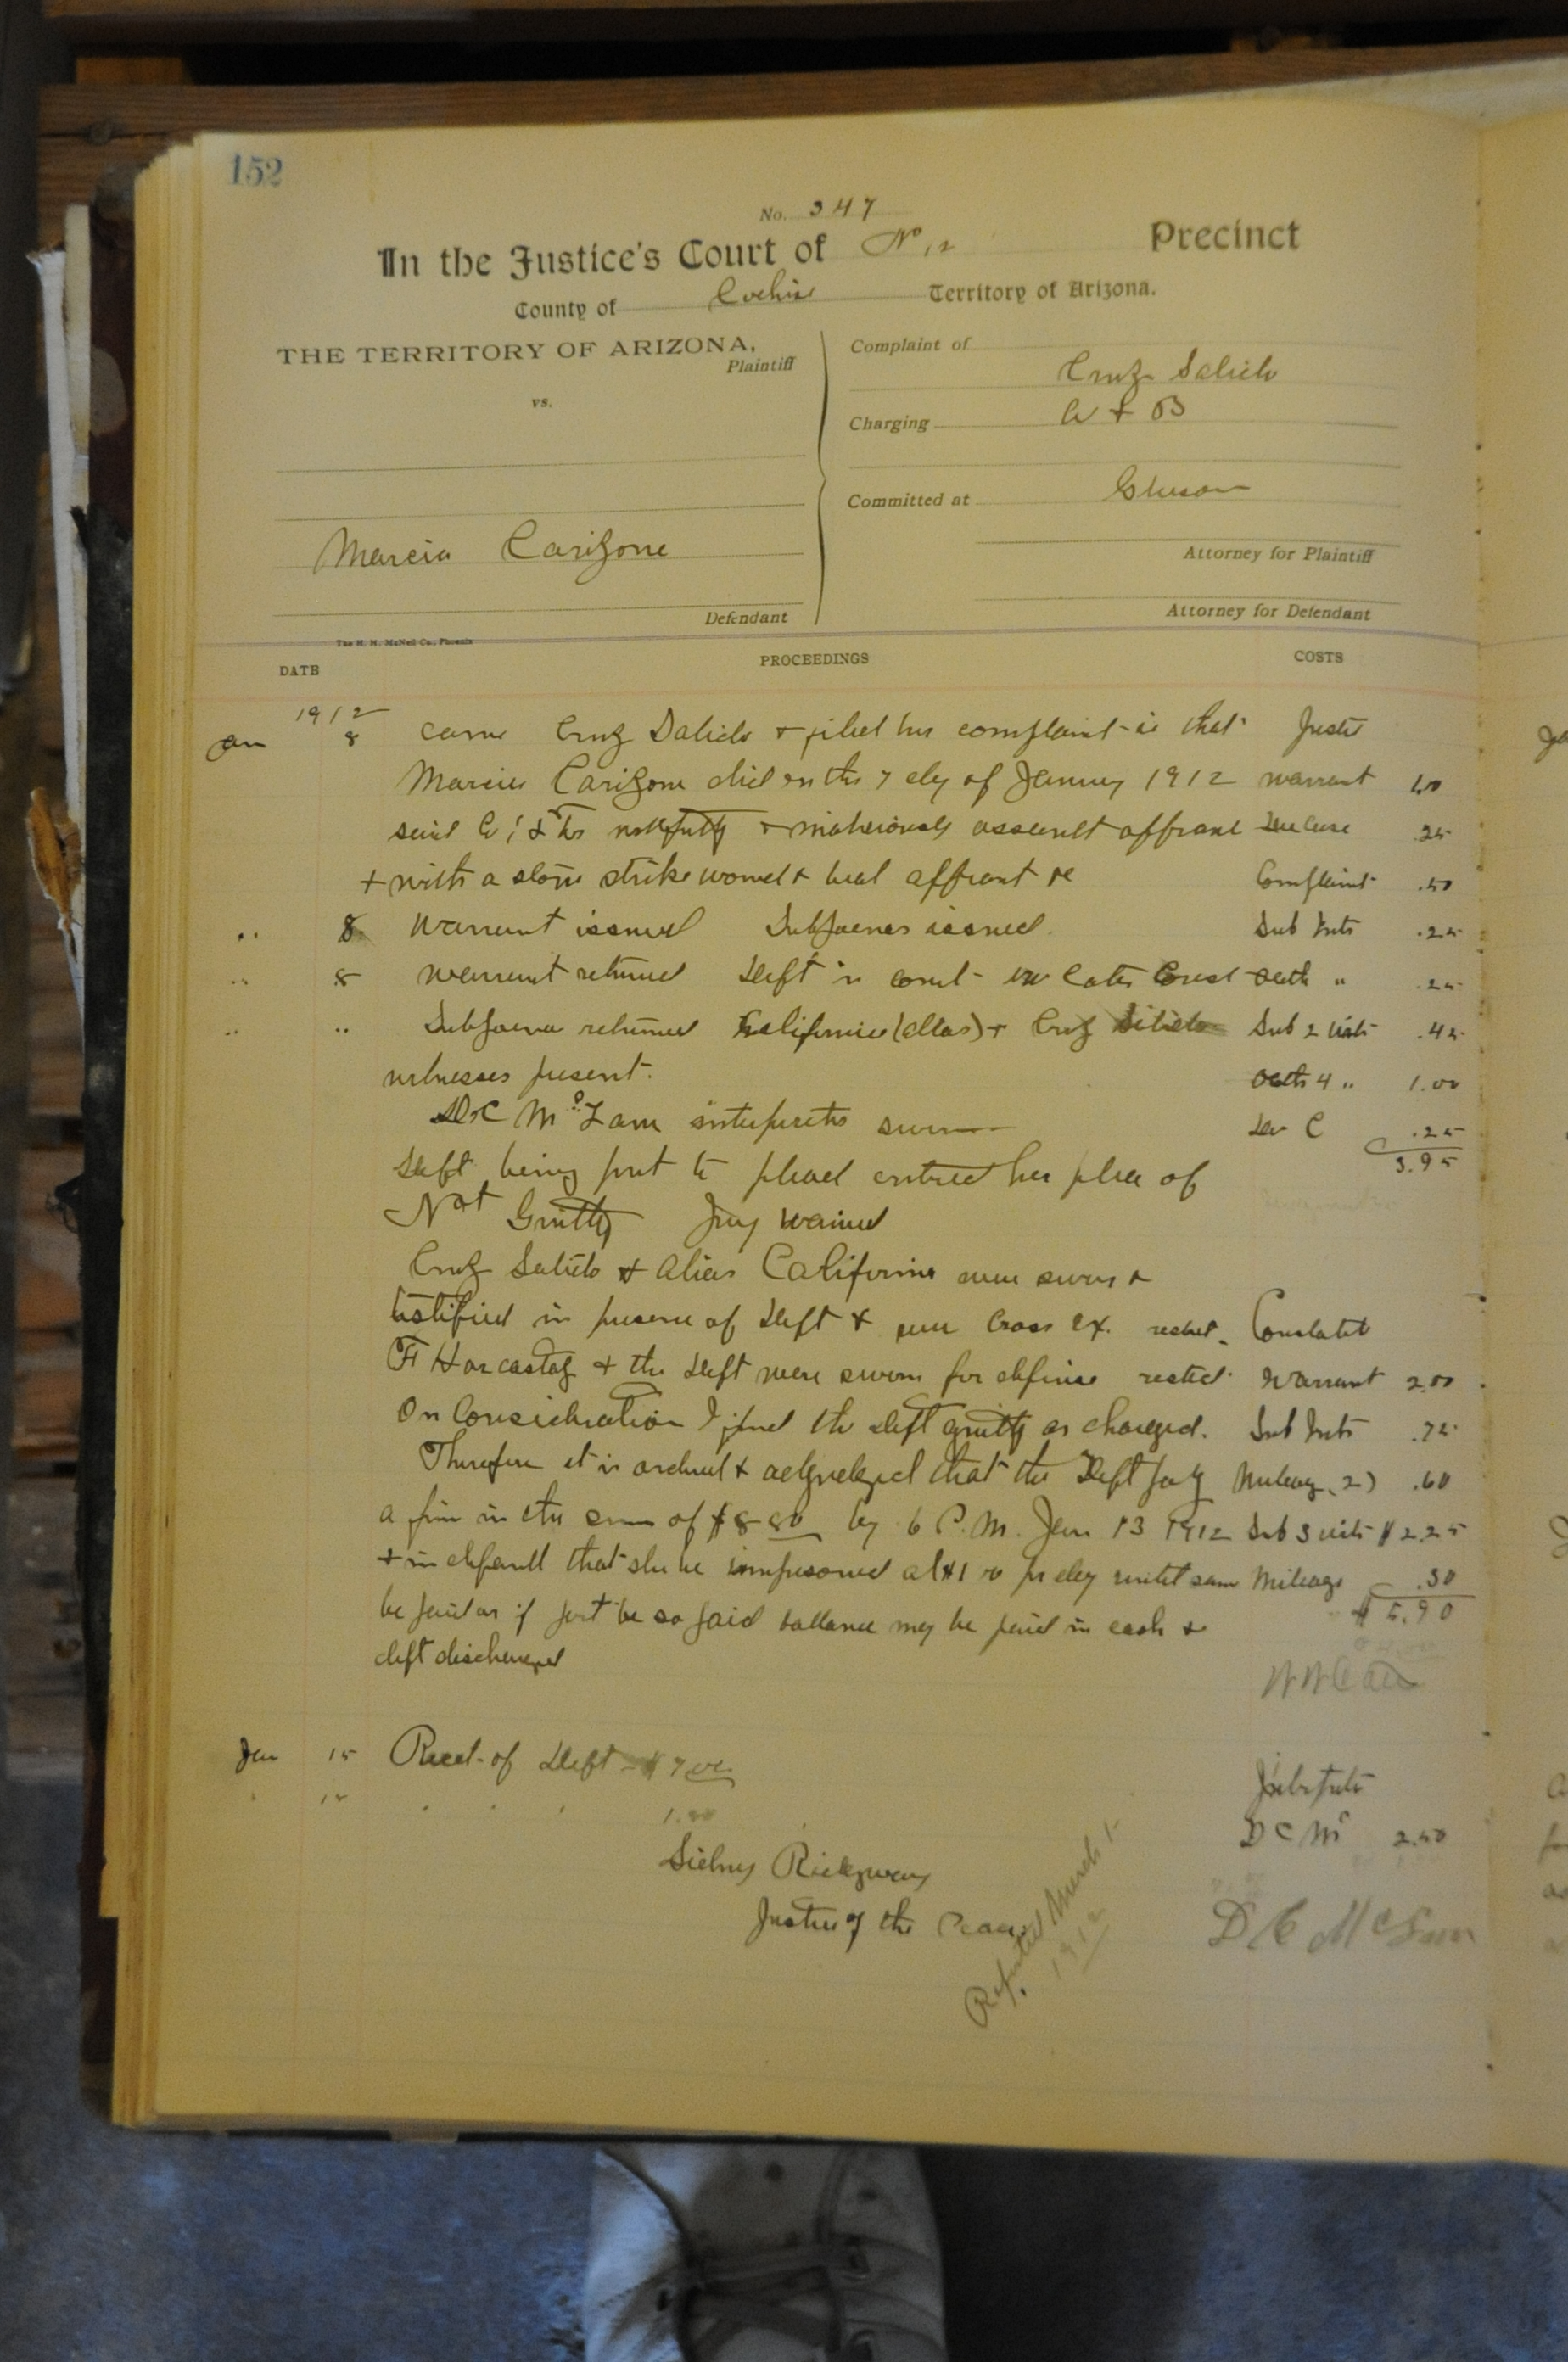 152
No. 347
In the Justice's Court of No 12 Precinct
County of Cochise Territory of Arizona.
THE TERRITORY OF ARIZONA,
Plaintiff
vs.
Marcia Carizone
Defendant
Complaint of
Cruz Salido
Charging A + B
Committed at Gleeson
Attorney for Plaintiff
Attorney for Defendant
The H. H. McNeil Co., Phoenix
DATE PROCEEDINGS COSTS
1912
Jan 8 came Cruz Salido + filed her complaint that Justice
Marcia Carizone did on the 7 day of January 1912 warrant 1.00
said C. & T. + maliciously assault affiant .25
+ with a stone strike wound + beat affiant Complaint .50
" 8 Warrant issued Subpoenas issued Sub .25
" 8 warrant returned Deft in court Oath " .25
" " Subpoena returned California (alias) + Cruz Salido Sub 2 wits .45
witnesses present. Oath 4 " 1.00
D C Mc interpreter sworn .25
3.95
Deft being put to plead entered her plea of
Not Guilty Jury waived
Cruz Salido + alias California were sworn +
testified in presence of Deft + were Cross Ex. rested Constable
+ the Deft were sworn for defense rested Warrant 2.00
On Consideration I find the Deft guilty as charged. Sub .75
Therefore it is ordered + adjudged that the Deft pay Mileage (2) .60
a fine in the sum of $8 00 by 6 P.M. Jan 13 1912 Sub 3 wits $2.25
+ in default that she be imprisoned at $1 00 per day until same Mileage .30
be paid or if part be so paid ballance may be paid in cash + $5.90
deft discharged
Jan 15 Recd of Deft $7 00
" " " 1.00
Interpreter
D C Mc 2.50
Sidney Ridgway
Justice of the Peace
Reported March 1
1912
D C Mc